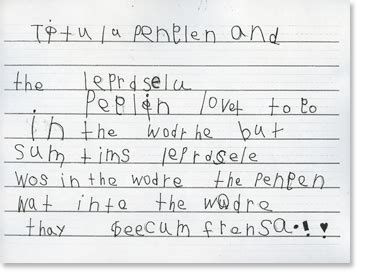 Titula penglen and
the leprdselu
Peplin lovet to go
in the wodrhe but
sum tims leprdsele
wos in the wodre the pengen
wat inte the wadre
thay beecum frensa.!!